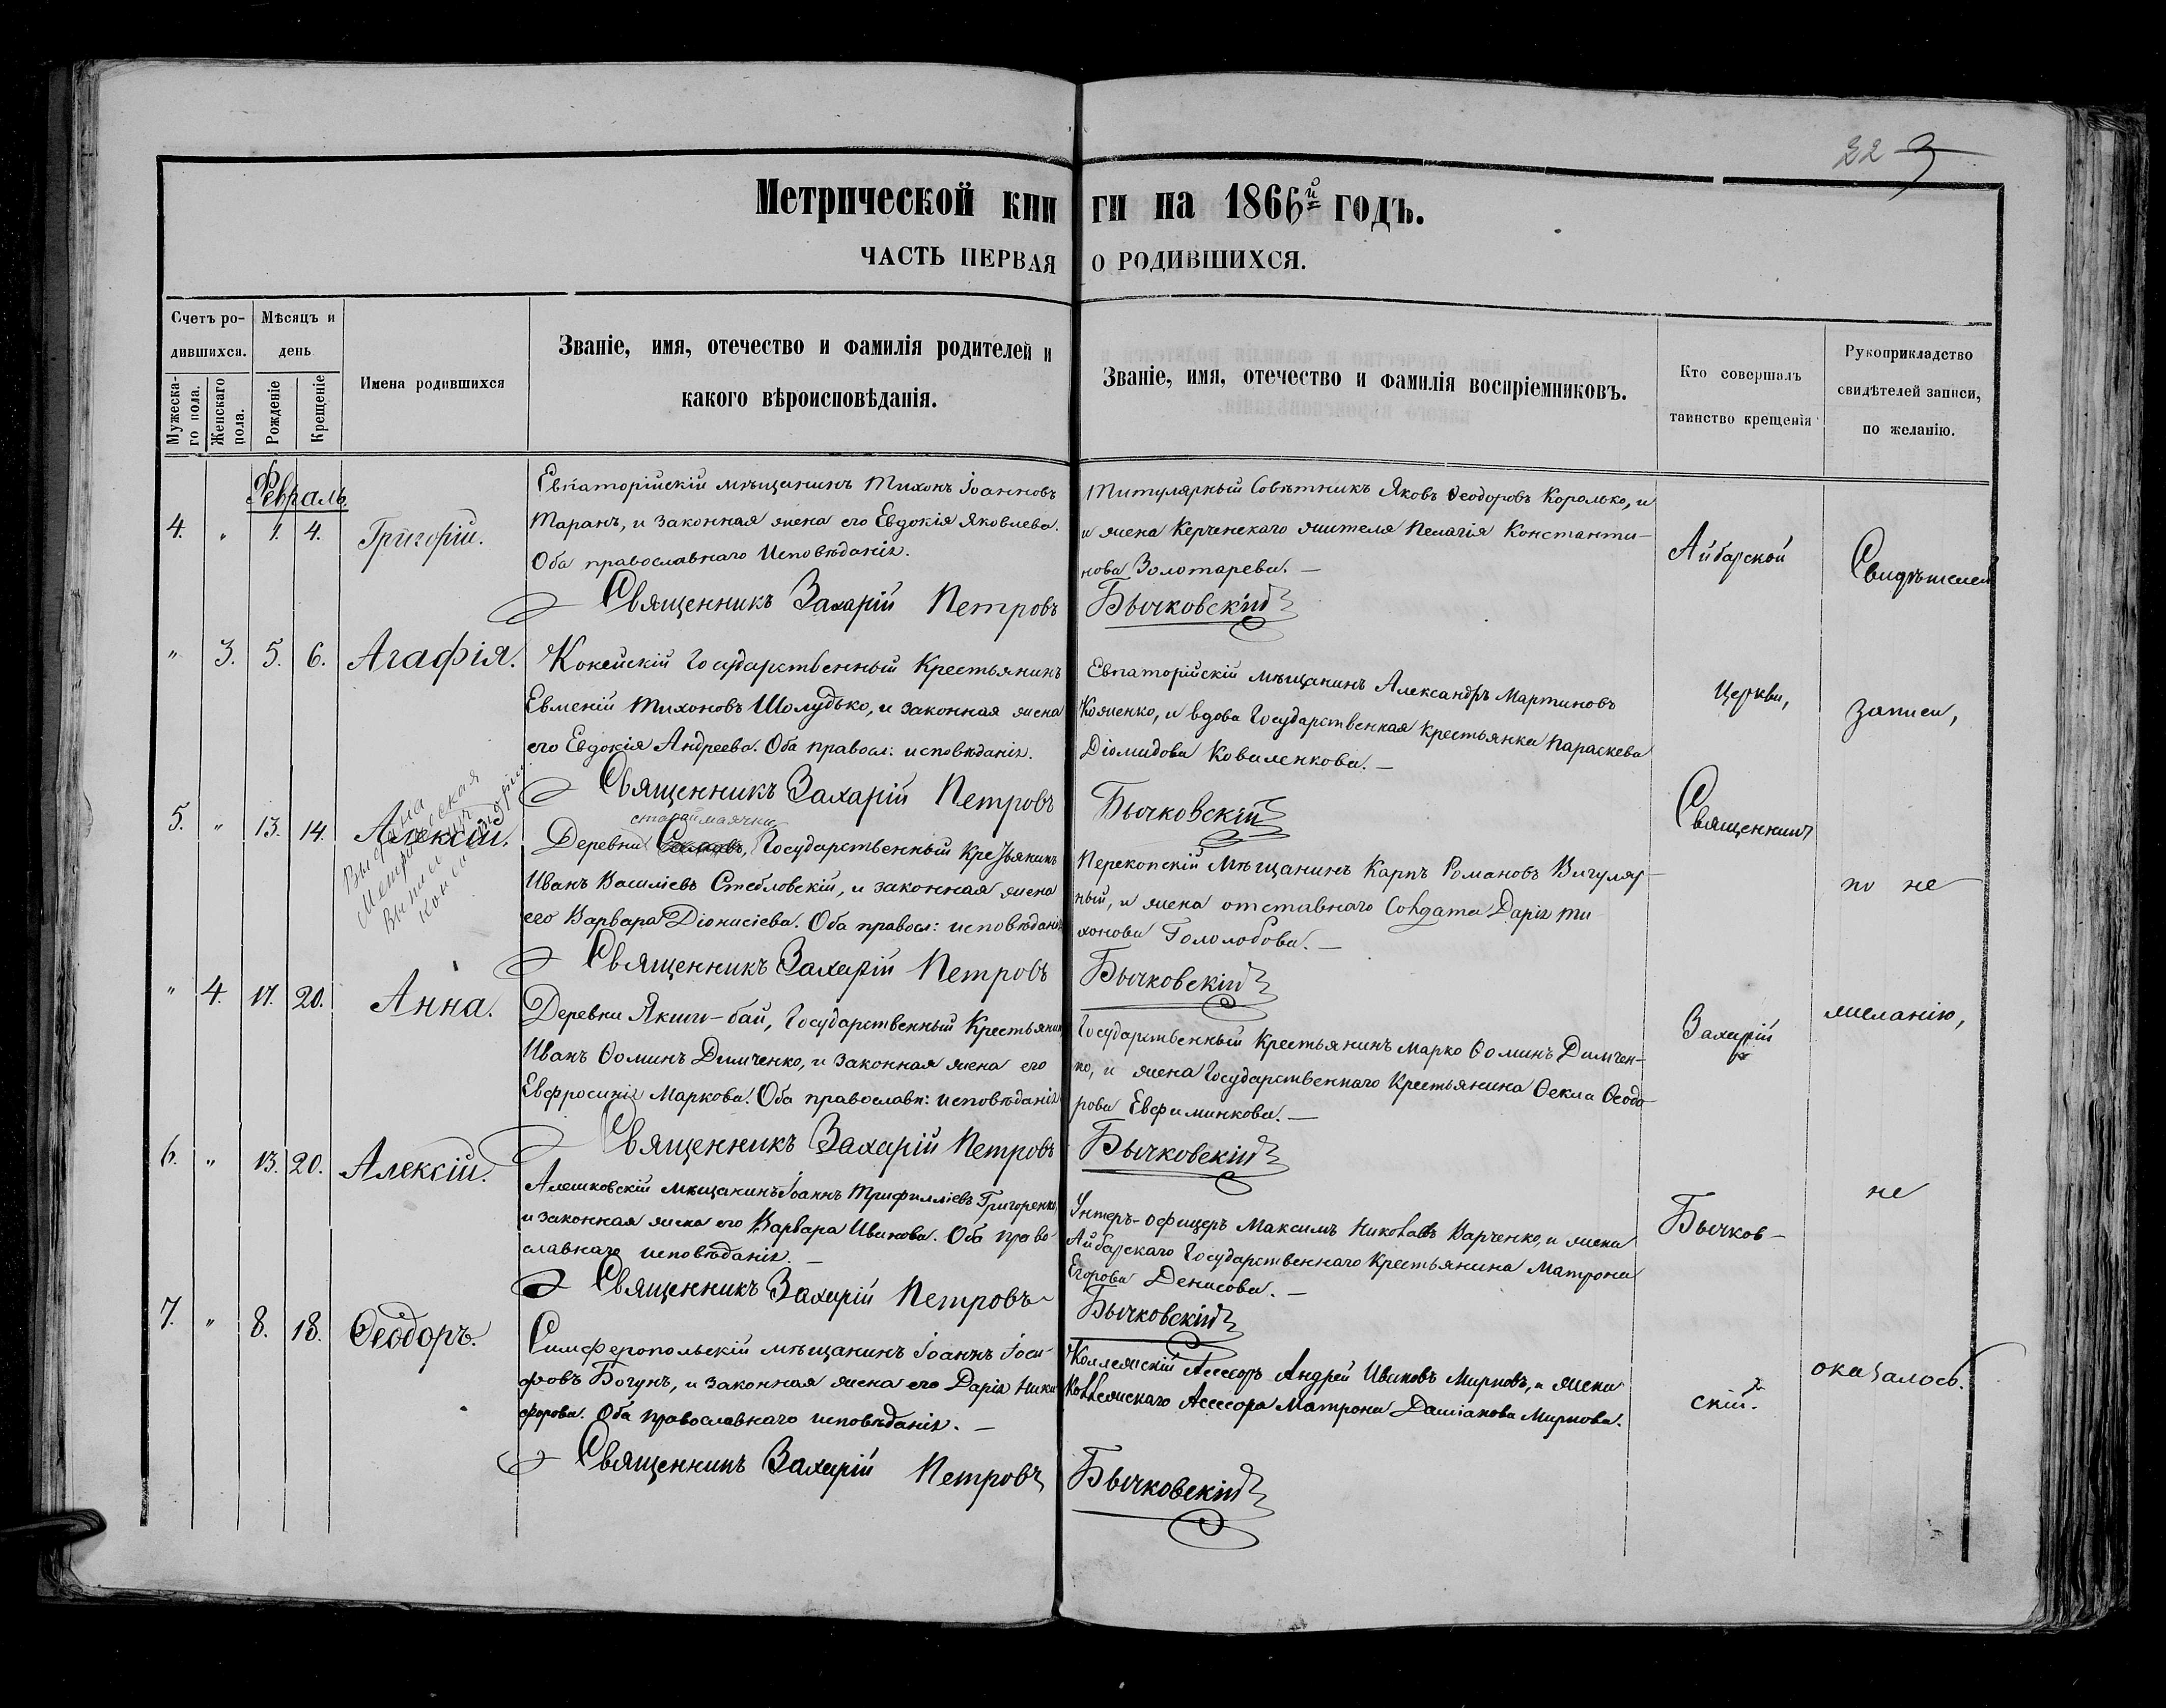 223
Метрической книги на 1866й годъ.
ЧАСТЬ ПЕРВАЯ О РОДИВШИХСЯ.
Счетъ ро-
дившихся.
Мужеска-
го пола.
Женскаго
пола.
Мѣсяцъ и
день
Рожденіе
Крещеніе
Имена родившихся
Званіе, имя, отечество и фамилія родителей и
какого вѣроисповѣданія.
Званіе, имя, отечество и фамилія воспріемниковъ.
Кто совершалъ
таинство крещенія
Рукоприкладство
свидѣтелей записи,
по желанію.
Февраль
4. " 1. 4. Григорій.
Евпаторійскій мѣщанинъ Тихонъ Іоанновъ
Таранъ, и законная жена его Евдокія Яковлева.
Оба православнаго Исповѣданія.
Титулярный Совѣтникъ Яковъ Ѳеодоровъ Королько, и
и жена Керченскаго жителя Пелагія Константи-
нова Золотарева. —
Священникъ Захарій Петровъ Бычковскій
" 3. 5. 6. Агафія.
Кокейскій Государственный Крестьянинъ
Евменій Тихоновъ Шолудько, и законная жена
его Евдокія Андреева. Оба правосл: исповѣданія.
Евпаторійскій мѣщанинъ Александръ Мартиновъ
Кояненко, и вдова Государственная крестьянка Параскева
Діомидова Коваленкова. —
Священникъ Захарій Петровъ Бычковскій
5. " 13. 14. Алексій.
Метрическая
старой маячки
Деревни Государственный Крестьянинъ
Иванъ Василіевъ Стебловскій, и законная жена
его Варвара Діонисіева. Оба правосл: исповѣданія
Перекопскій Мѣщанинъ Карпъ Романовъ Вигуляр-
ный, и жена отставнаго Солдата Дарія Ти
хонова Гололобова. —
Священникъ Захарій Петровъ Бычковскій
" 4. 17. 20. Анна.
Деревни Якши-бай, Государственный Крестьянинъ
Иванъ Ѳоминъ Димченко, и законная жена его
Евфросинія Маркова. Оба православн: исповѣданія
Государственный Крестьянинъ Марко Ѳоминъ Димчен-
ко, и жена Государственнаго Крестьянина Ѳекла Ѳеодо
рова Евфиминкова. —
Священникъ Захарій Петровъ Бычковскій
6. " 13. 20. Алексій.
Алешковскій мѣщанинъ Іоаннъ Трифилліевъ Григоренко,
и законная жена его Варвара Иванова. Оба право-
славнаго исповѣданія. —
Унтеръ-офицеръ Максимъ Николаевъ Варченко, и жена
Айбарскаго Государственнаго Крестьянина Матрона
Егорова Денисова. —
Священникъ Захарій Петровъ Бычковскій
7. " 8. 18. Ѳеодоръ.
Симферопольскій мѣщанинъ Іоаннъ Іоси-
фовъ Богунъ, и законная жена его Дарія Ники
форова. Оба православнаго исповѣданія. —
Коллежскій Ассесоръ Андрей Ивановъ Мирновъ, и жена
Коллежскаго Ассесора Матрона Даміанова Мирнова.
Священникъ Захарій Петровъ Бычковскій
Айбарской
Церкви,
Священникъ
Захарій
Бычков-
скій.
Свидѣтелей
записи,
по не
желанію,
не
оказалось.